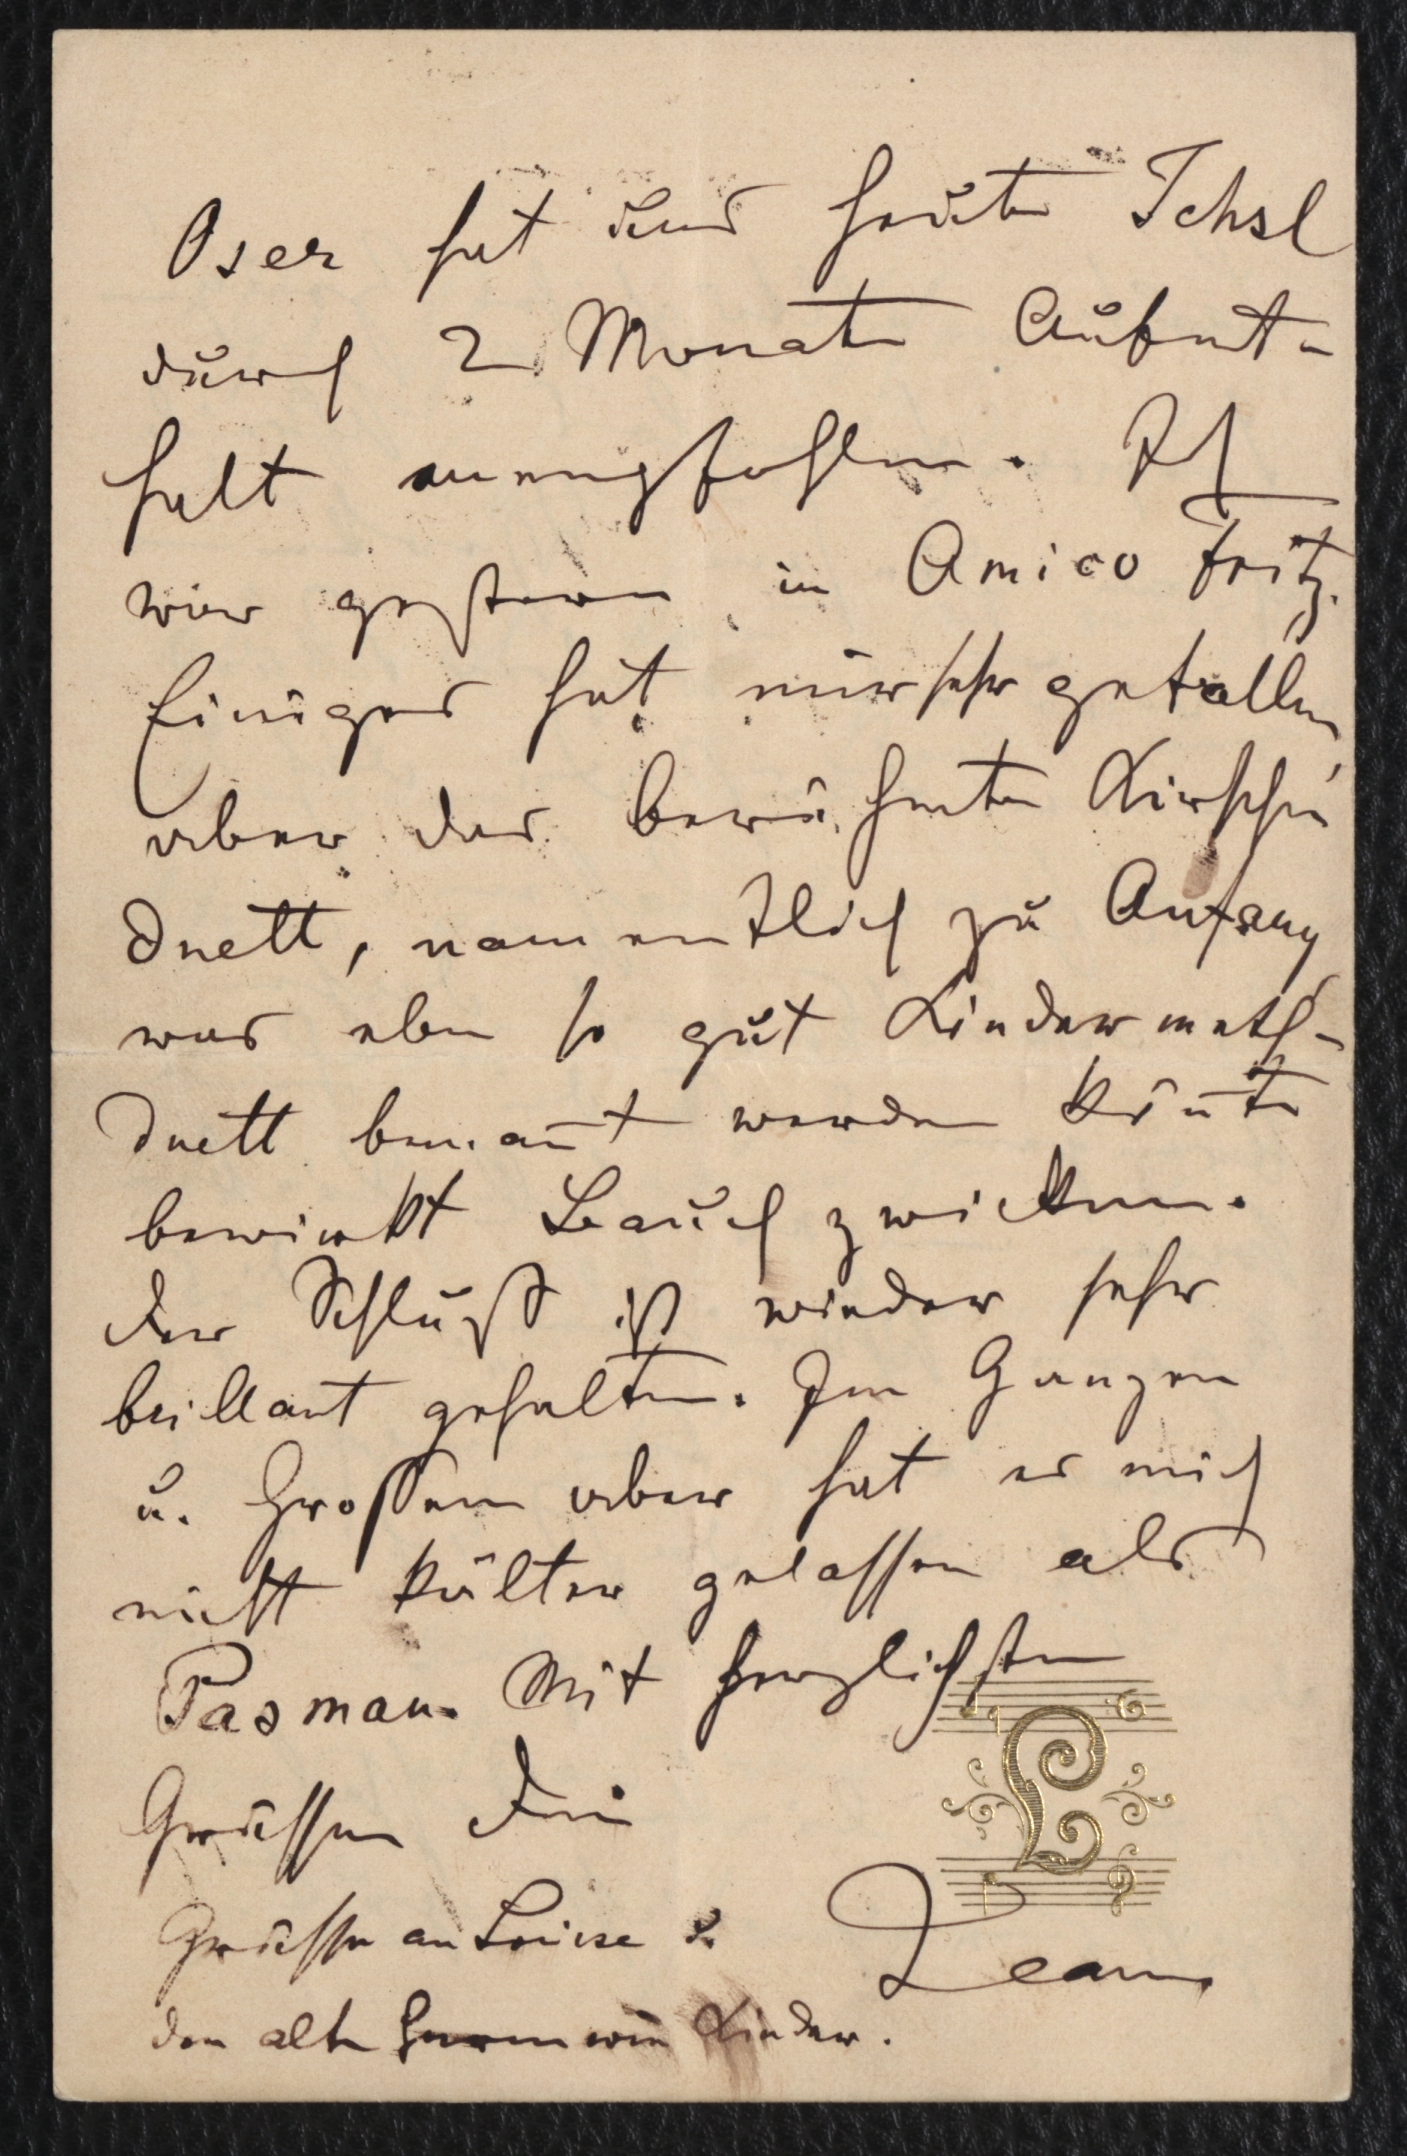 Oser hat uns heute Ischl
durch 2 Monate Aufent-
halt anempfohlen. Ich
war gestern in Amico Fritz.
Einiges hat mir sehr gefallen,
aber das berühmte Kirschen
Duett, namentlich zu Anfang
was eben so gut Kindermeth-
Duett benan̄t werden kön̄te
bewirkt Bauchzwicken.
Der Schluß ist wieder sehr
brillant gehalten. Im Ganzen
u. Großen aber hat es mich
nicht kälter gelassen als
Pasman. Mit herzlichsten
Grüssen Dein
Jean
Grüsse an Louise u.
den alten Herrn wie Kinder.
L